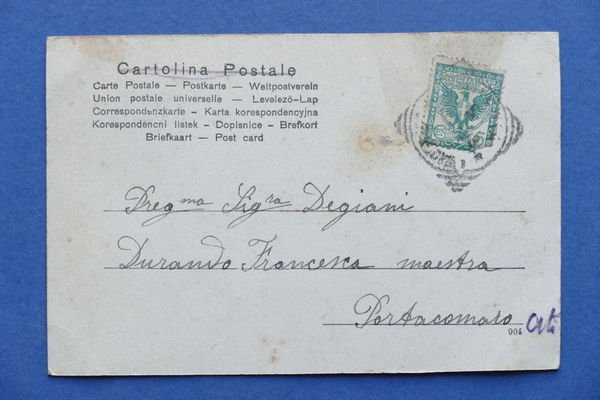 Cartolina Postale
Carte Postale — Postkarte — Weltpostverein
Union postale universelle — Levelező-Lap
Correspondenzkarte - Karta korespondencyjna
Korespondenční listek - Dopisnice - Brefkort
Briefkaart — Post card
Preg.ma Sig.ra Degiani
Durando Francesca maestra
Portacomaro
904